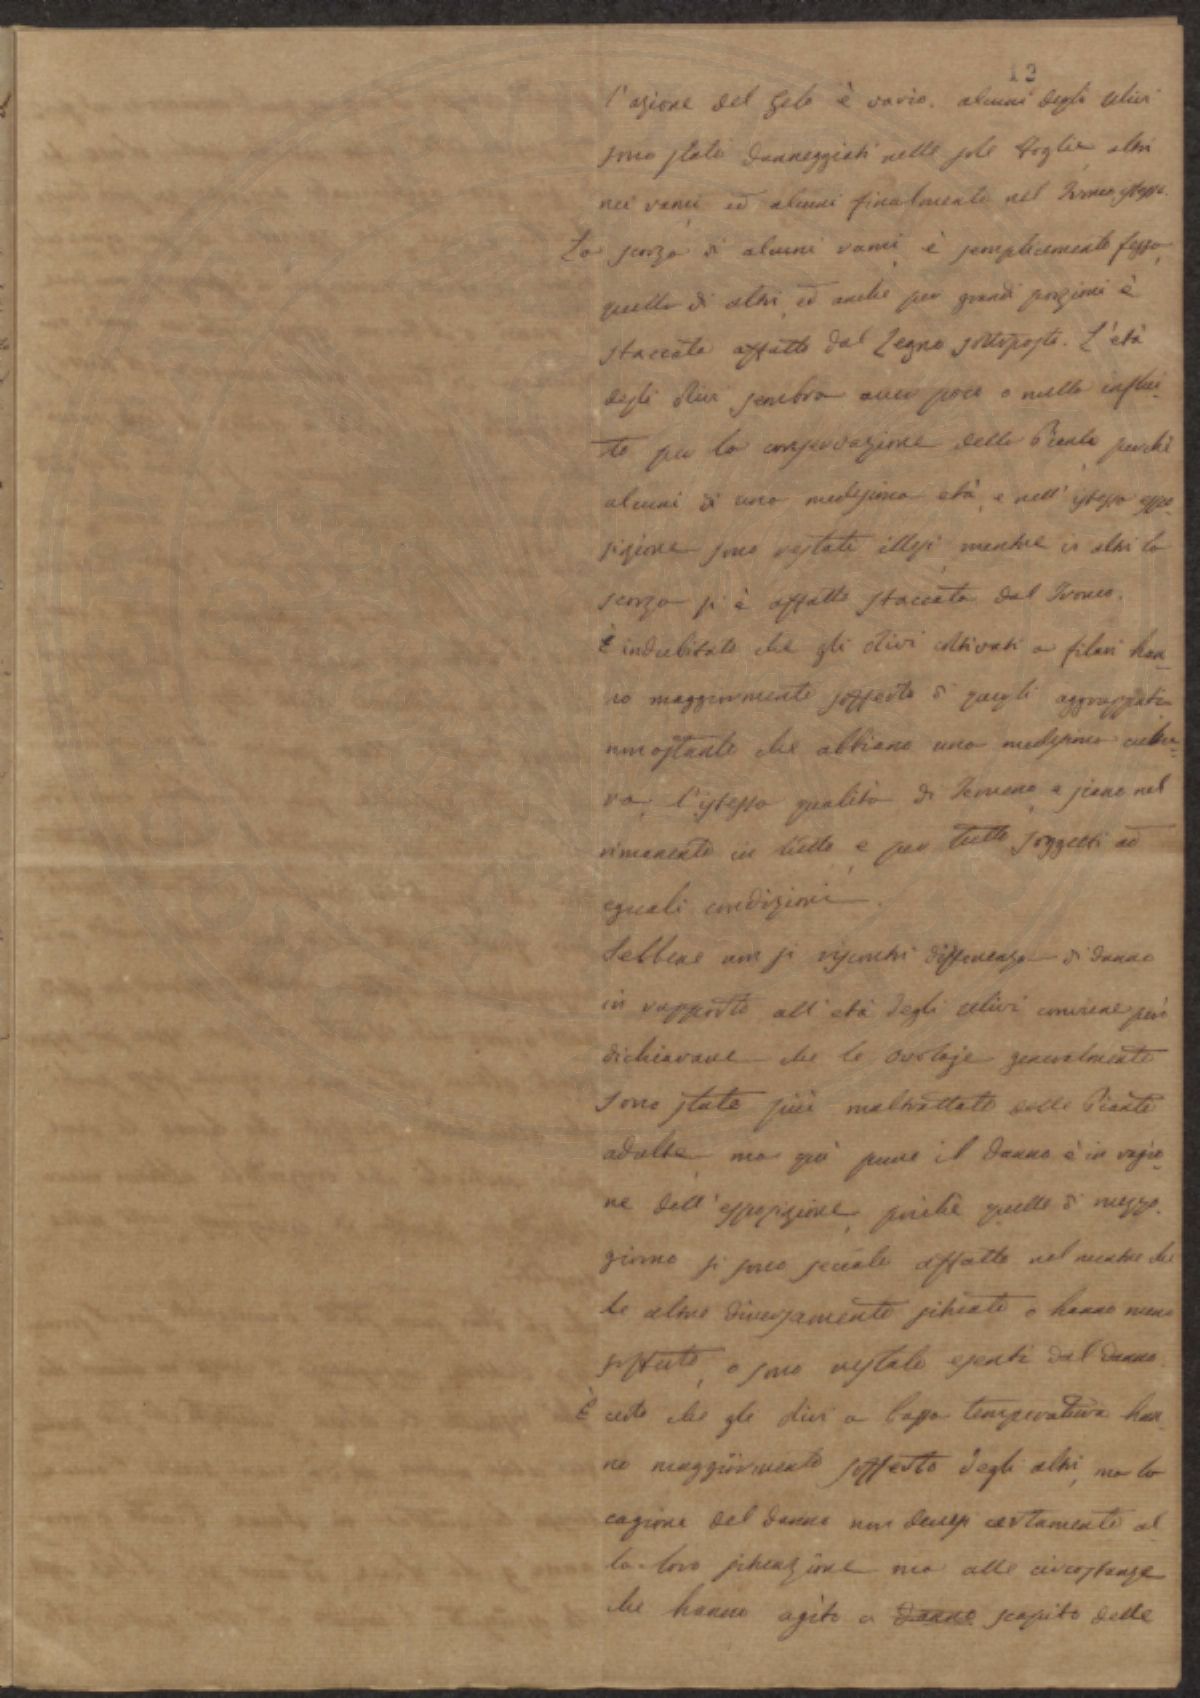 12
l'azione del Gelo è vario. alcuni degli Ulivi
sono stati danneggiati nelle sole Foglie, altri
nei rami, ed alcuni finalmente nel Tronco stesso.
La scorza di alcuni rami è semplicemente fessa,
quella di altri, ed anche per grandi porzioni è
staccata affatto dal Legno sottoposto. L'età
degli olivi sembra aver poco o nulla influi-
to per la conservazione delle Piante perchè
alcuni di una medesima età, e nell'istessa espo-
sizione sono restati illesi, mentre in altri la
scorza si è affatto staccata dal Tronco.
È indubitato che gli olivi coltivati a filari han-
no maggiormente sofferto di quegli aggruppati
nonostante che abbiano una medesima cultu-
ra, l'istessa qualità di Terreno, e siano nel
rimanente in tutto, e per tutto soggetti ad
eguali condizioni.
Sebbene non si riscontri differenza di danno
in rapporto all'età degli ulivi conviene però
dichiarare che le ovolaje generalmente
sono state più maltrattate delle Piante
adulte, ma quì pure il danno è in ragio-
ne dell'esposizione, poichè quelle di mezzo-
giorno si sono seccate affatto nel mentre che
le altre diversamente situate o hanno meno
sofferto, o sono restate esenti dal danno.
È certo che gli olivi a bassa temperatura han-
no maggiormente sofferto degli altri, ma la
cagione del danno non devesi certamente al
la loro situazione ma alle circostanze
che hanno agito a danno scapito delle